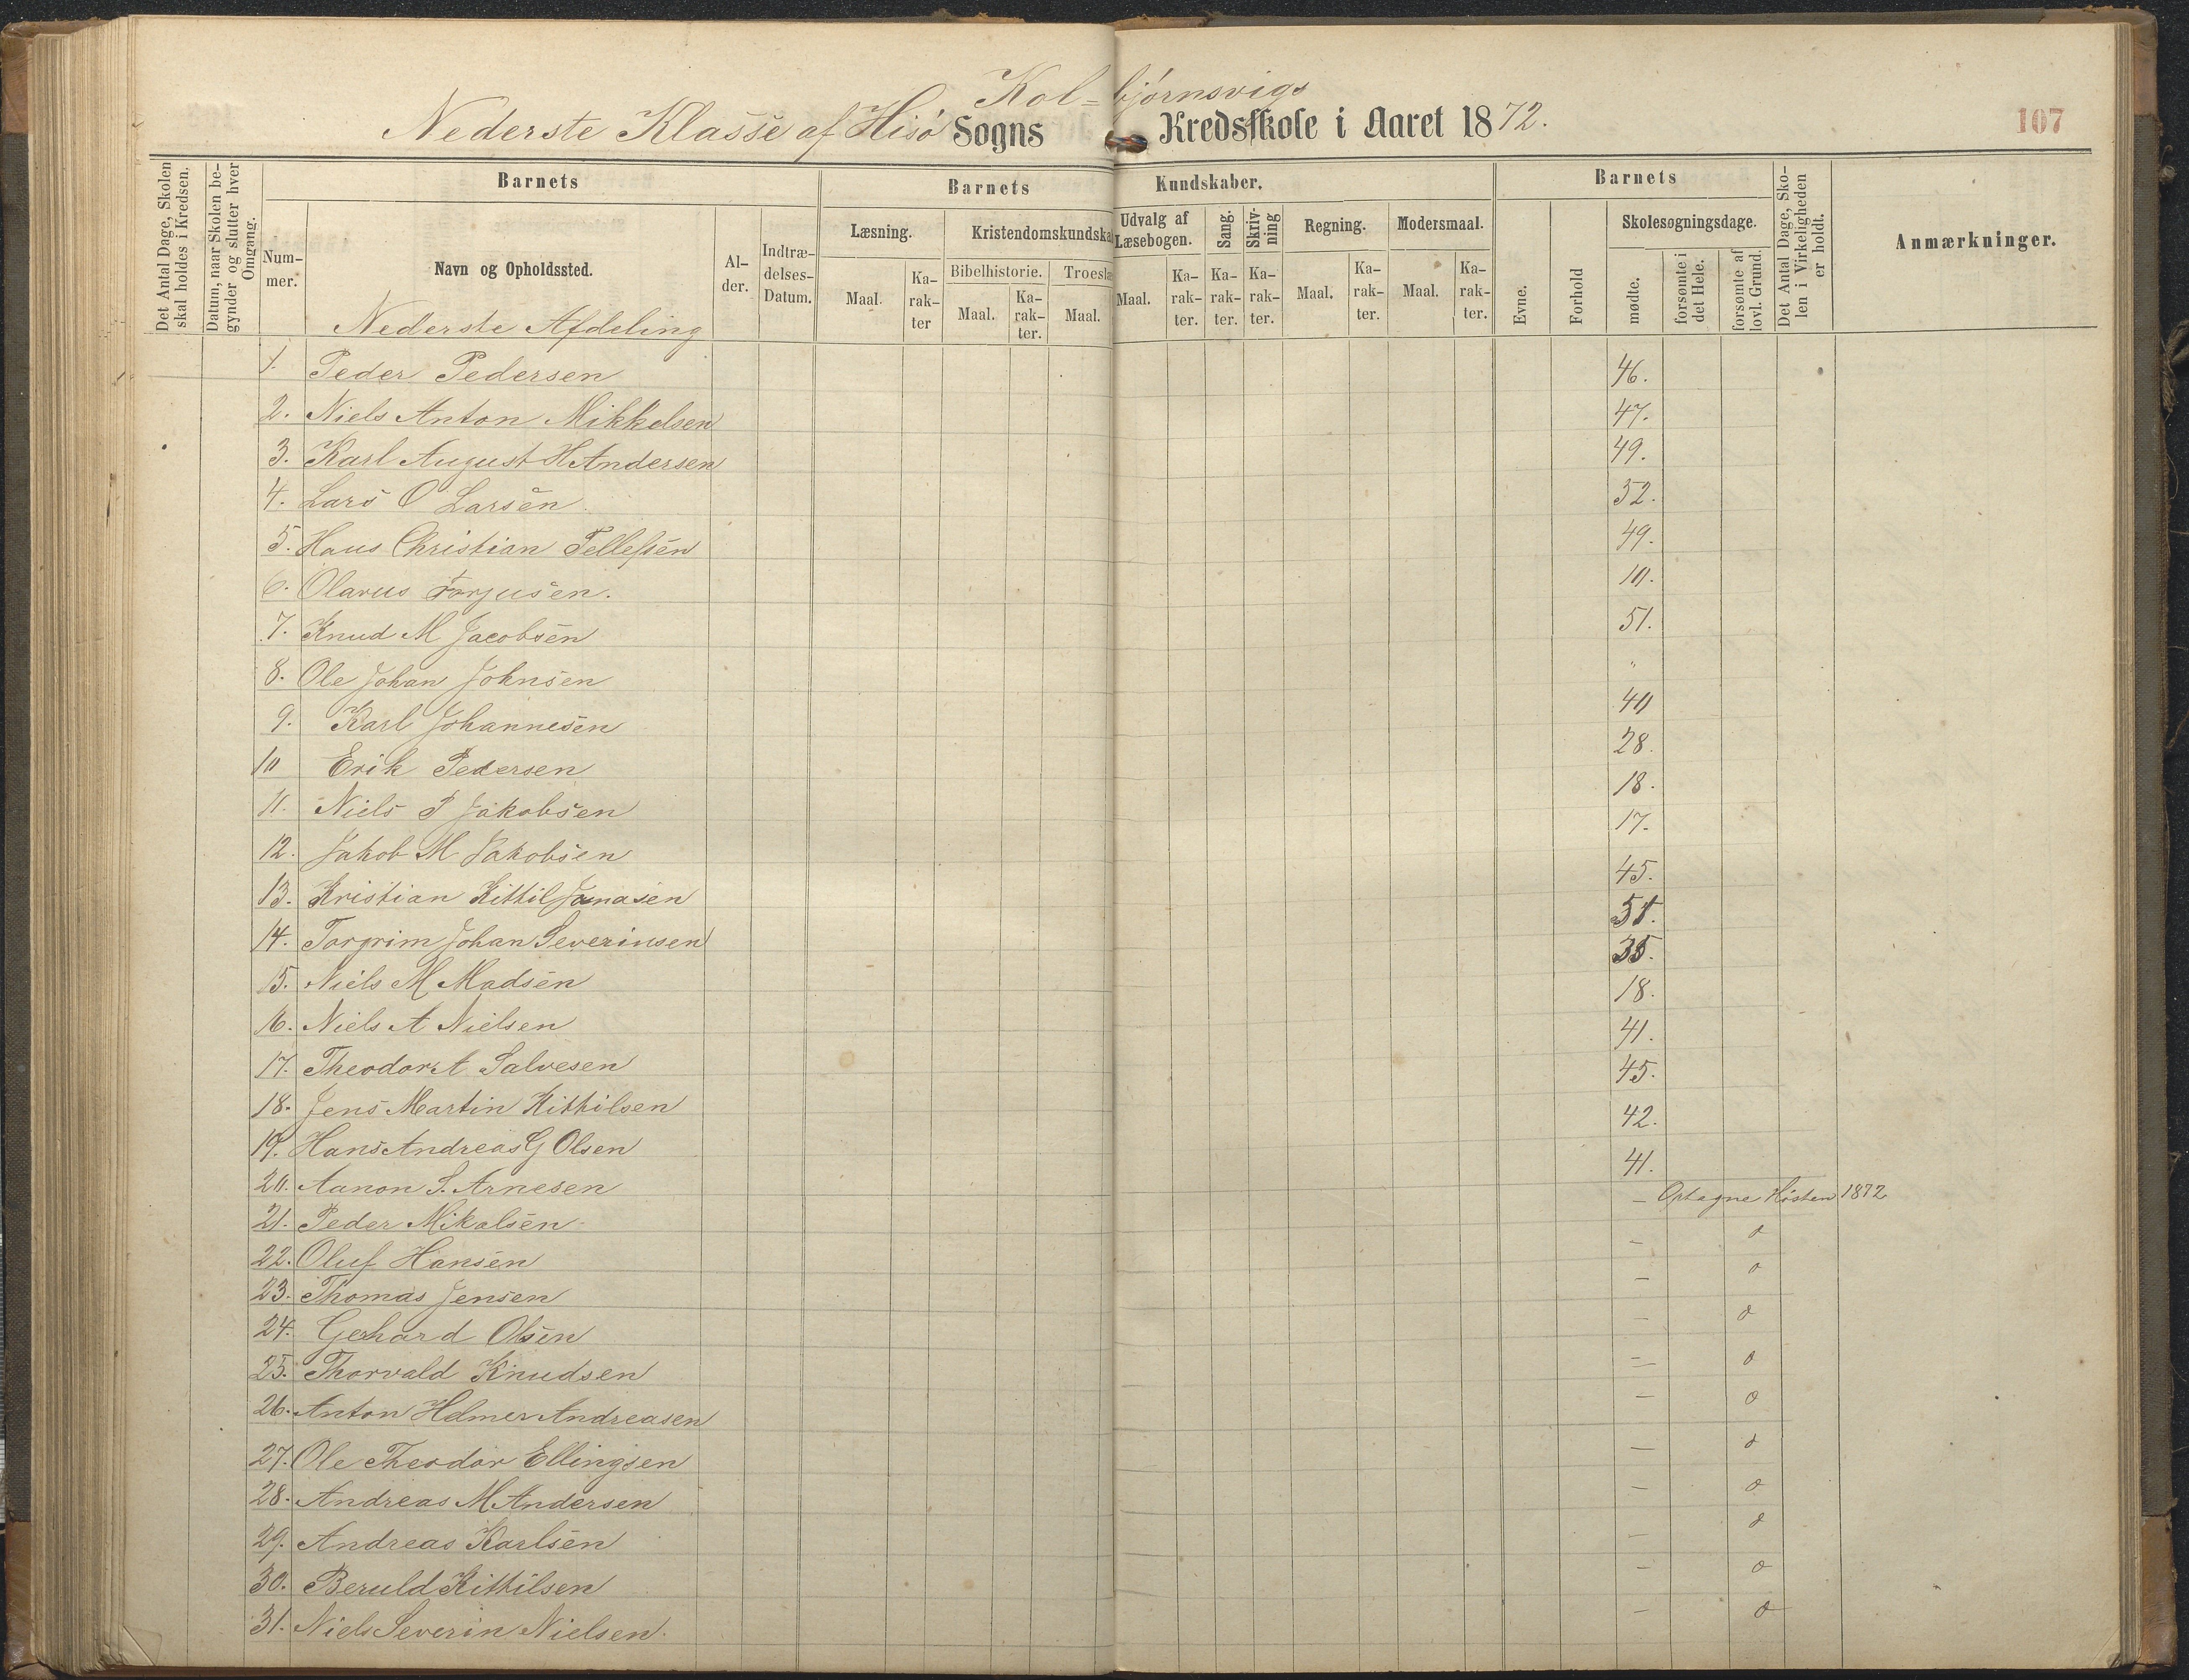 Kol-bjørnsvigs
Nederste Klasse af Hisø Sogns Kredsskole i Aaret 1872.
107
Det Antal Dage, Skolen skal holdes i Kredsen.
Datum, naar Skolen begynder og slutter hver Omgang.
Barnets
Barnets Kundskaber.
Barnets
Det Antal Dage, Skolen i Virkeligheden er holdt.
Anmærkninger.
Num-mer.
Navn og Opholdssted.
Al-der.
Indtræ-delses-Datum.
Læsning.
Kristendomskundska
Udvalg af Læsebogen.
Sang.
Skriv-ning
Regning.
Modersmaal.
Evne.
Forhold
Skolesøgningsdage.
Bibelhistorie.
Troeslæ
Maal.
Ka-rak-ter
Maal.
Ka-rak-ter.
Maal.
Maal.
Ka-rak-ter.
Ka-rak-ter.
Ka-rak-ter.
Maal.
Ka-rak-ter.
Maal.
Ka-rak-ter.
mødte.
forsømte i det Hele.
forsømte af lovl. Grund.
Nederste Afdeling
1. Peder Pedersen 46.
2. Niels Anton Mikkelsen 47.
3. Karl August H Andersen 49.
4. Lars O Larsen 52.
5. Hans Christian Tellefsen 49.
6. Olavus Torjusen. 10.
7. Knud M Jacobsen 51.
8. Ole Johan Johnsen "
9. Karl Johannesen 40
10 Erik Pedersen 28.
11. Niels P Jakobsen 18.
12. Jakob M Jakobsen 17.
13. Kristian Kittil Jonasen 45.
14. Torgrim Johan Severinsen 51.
15. Niels M Madsen 35.
16. Niels A Nielsen 18.
17. Theodor A Salvesen 41.
18. Jens Martin Kittilsen 45.
19. Hans Andreas G Olsen 42.
20. Aanon S. Arnesen 41.
21. Peder Mikalsen — Optagne Høsten 1872
22. Oluf Hansen — o
23. Thomas Jensen — o
24. Gerhard Olsen — o
25. Thorvald Knudsen — o
26. Anton Helmer Andreasen — o
27. Ole Theodor Ellingsen — o
28. Andreas M Andersen — o
29. Andreas Karlsen — o
30. Beruld Kittilsen — o
31. Niels Severin Nielsen. — o